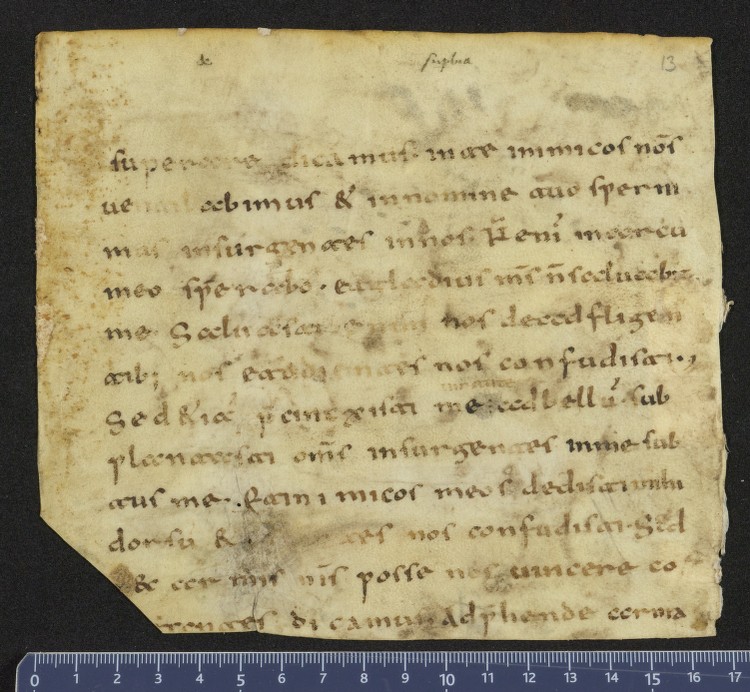 de supbia 13
superare dicamus. In te inimicos nr̄os
ventilabimus & in nomine tuo sperni
mus insurgentes in nos. N̄ eni in arcu
meo sperabo. et gladius ms n̄ saluabit
me. Saluasti enim nos de adfligen
tib; nos et odientes nos confudisti.
Sed & ic p̄cinxisti me uirtute ad bellū. sub
plantasti oms̄ insurgentes in me sub
tus me. Et inimicos meos dedisti mihi
dorsu & tes nos confudisti. Sed
& arm posse nos uincere
dicamus. Adp̄hende arma